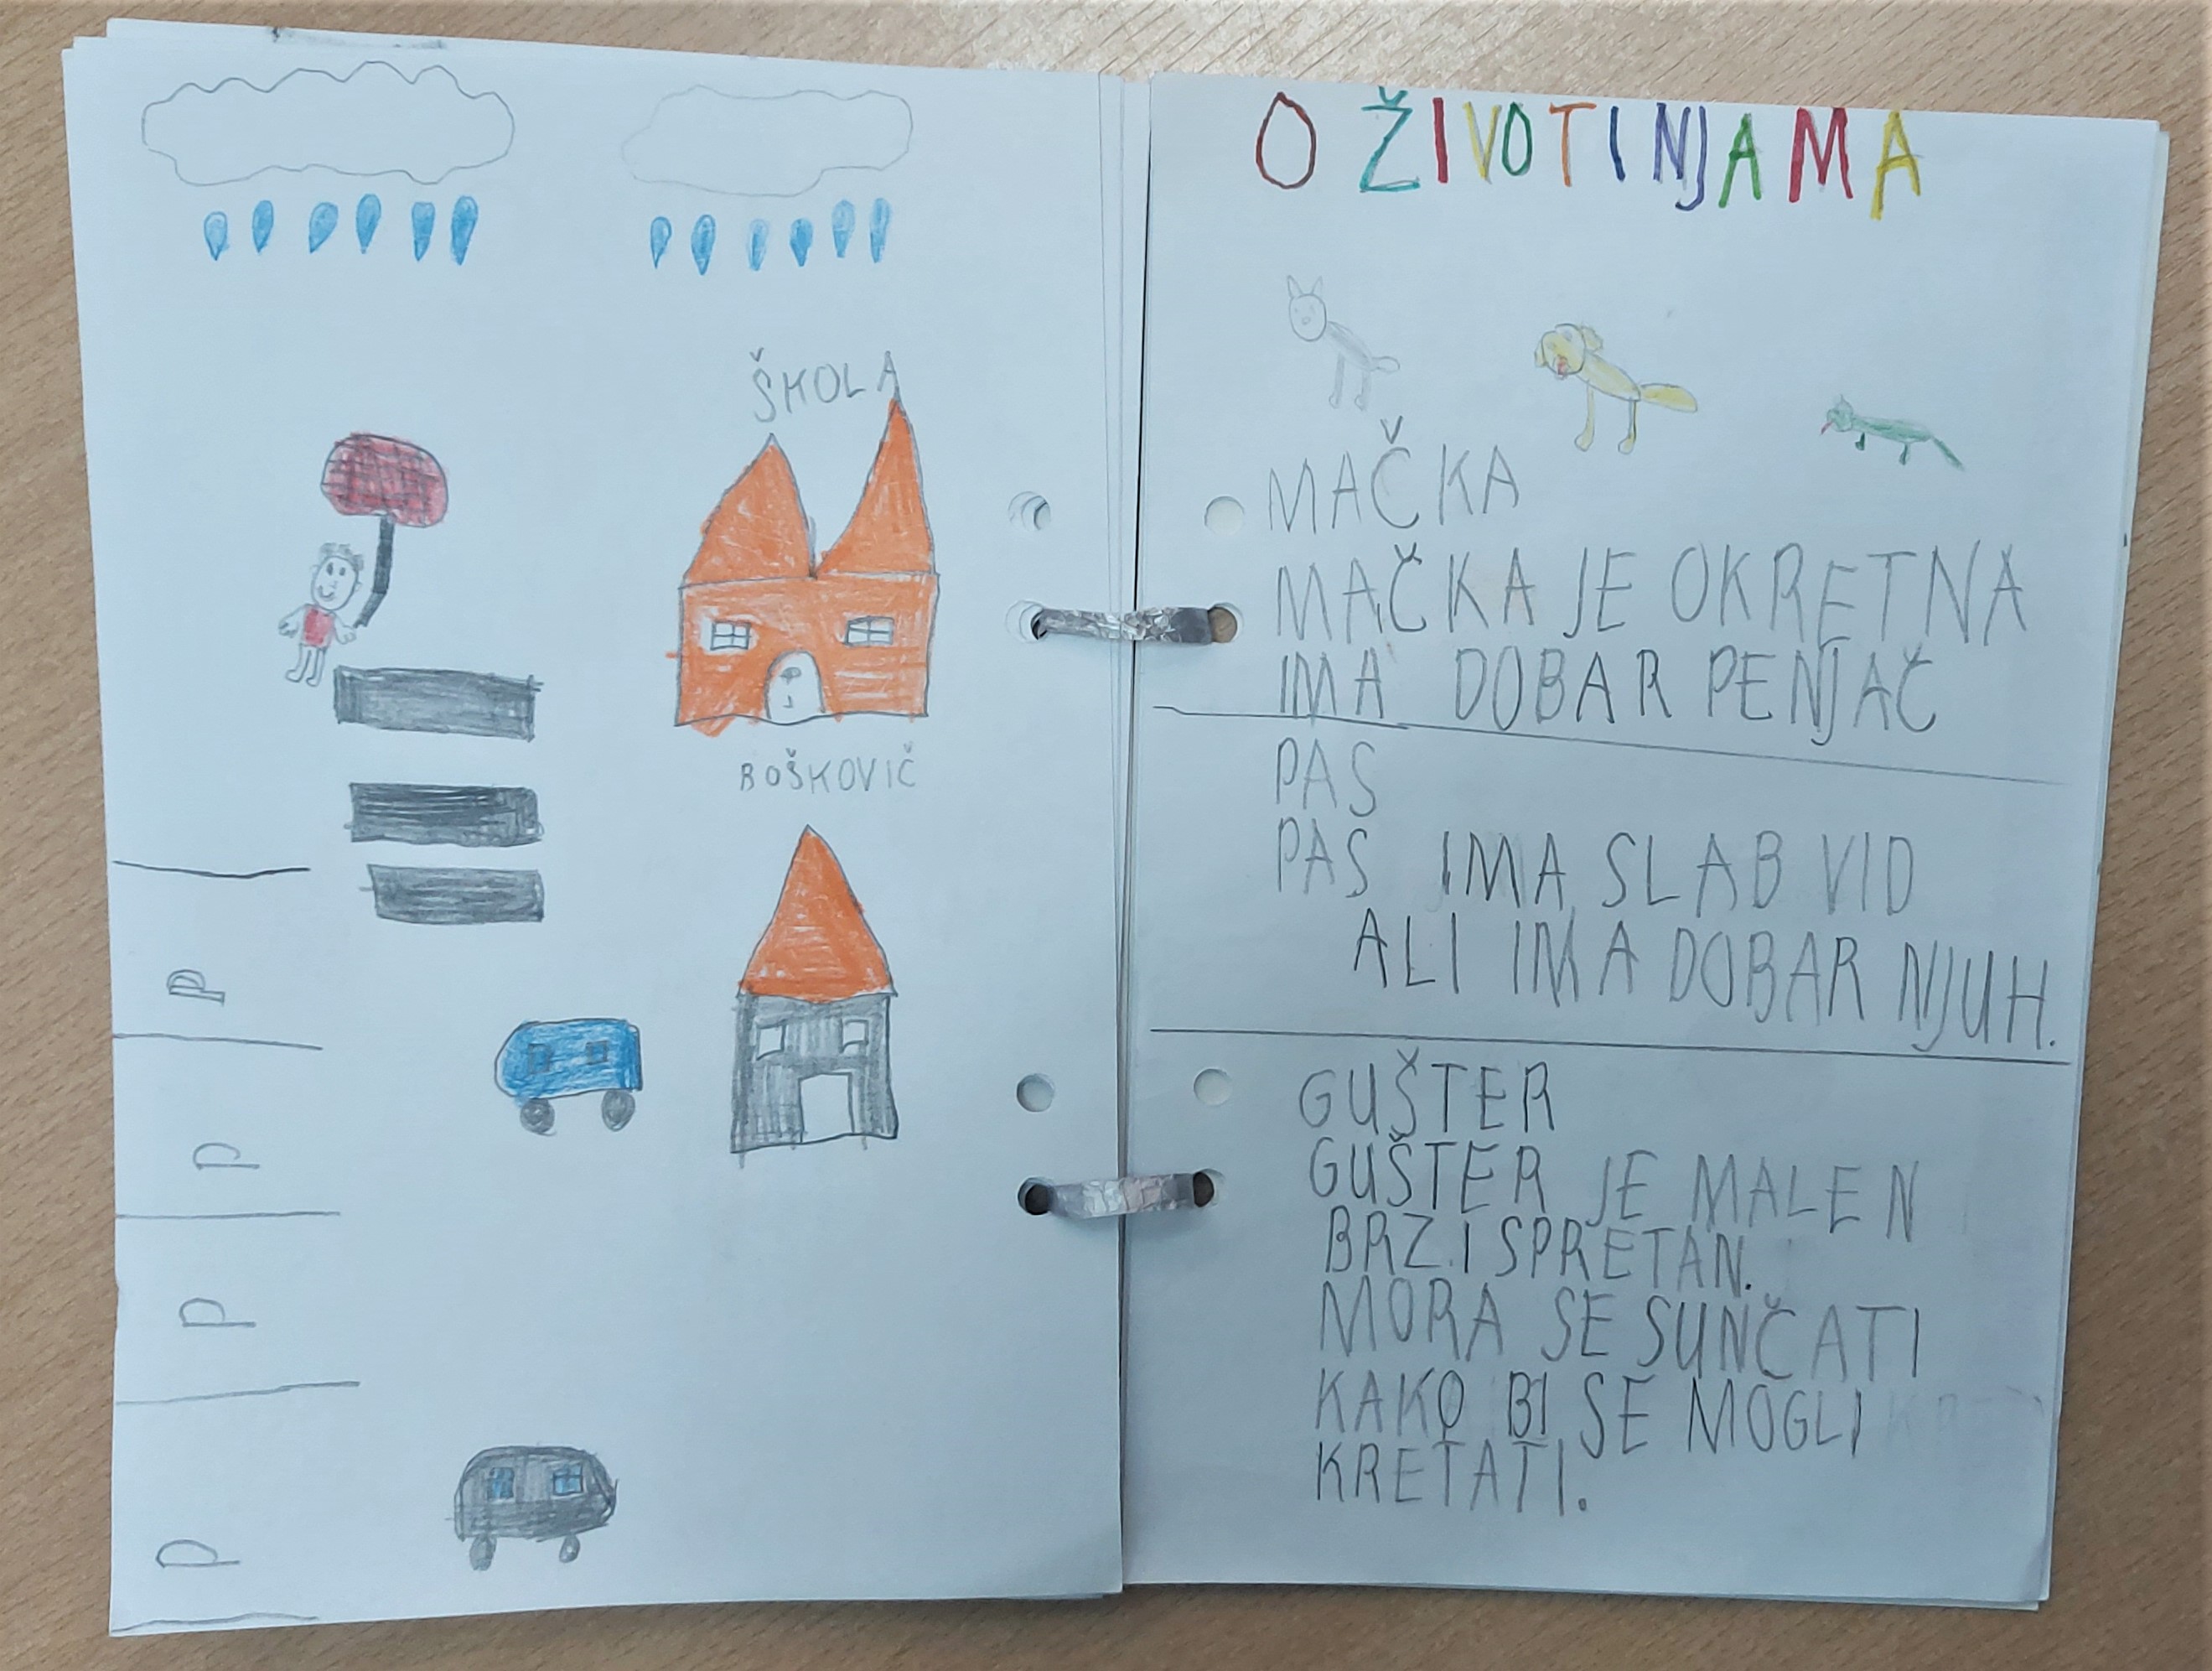 ŠKOLA
BOŠKOVIČ
P
P
P
P
O ŽIVOTINJAMA
MAČKA
MAČKA JE OKRETNA
IMA DOBAR PENJAČ
PAS
PAS IMA SLAB VID
ALI IMA DOBAR NJUH.
GUŠTER
GUŠTER JE MALEN
BRZ I SPRETAN.
MORA SE SUNČATI
KAKO BI SE MOGLI
KRETATI.